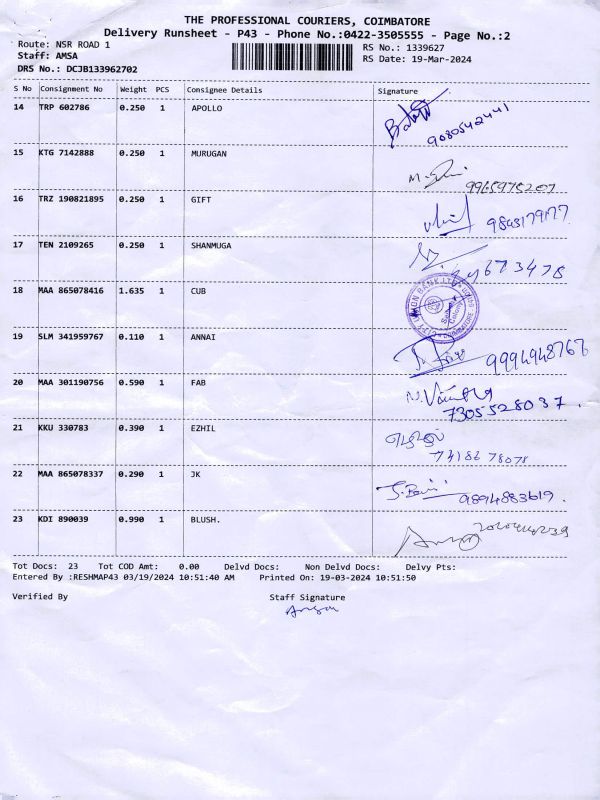 THE PROFESSIONAL COURIERS, COIMBATORE
Delivery Runsheet - P43 - Phone No.:0422-3505555 - Page No.:2
Route: NSR ROAD 1
RS No.: 1339627
Staff: AMSA
RS Date: 19-Mar-2024
DRS No.: DCJB133962702
S No Consignment No Weight PCS Consignee Details Signature
14 TRP 602786 0.250 1 APOLLO
9080542441
15 KTG 7142888 0.250 1 MURUGAN
16 TRZ 190821895 0.250 1 GIFT
17 TEN 2109265 0.250 1 SHANMUGA
18 MAA 865078416 1.635 1 CUB
CITY UNION BANK LTD
COIMBATORE
19 SLM 341959767 0.110 1 ANNAI
9994948767
20 MAA 301190756 0.590 1 FAB
7305528037.
21 KKU 330783 0.390 1 EZHIL
எழில்
22 MAA 865078337 0.290 1 JK
9894883619.
23 KDI 890039 0.990 1 BLUSH.
Tot Docs: 23 Tot COD Amt: 0.00 Delvd Docs: Non Delvd Docs: Delvy Pts:
Entered By :RESHMAP43 03/19/2024 10:51:40 AM Printed On: 19-03-2024 10:51:50
Verified By Staff Signature